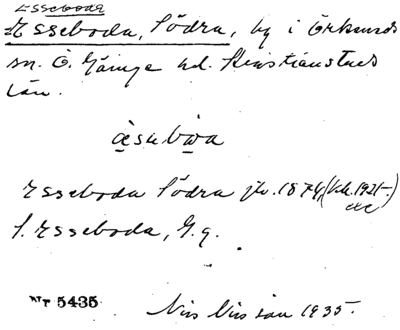 Esseboda
Esseboda, Södra, by i Örkeneds
sn. Ö. Göinge hd. Kristianstads
län.
Esseboda Södra jb. 1876,
f. Esseboda, G.g.
Nr 5435
Nils Nilsson 1935.